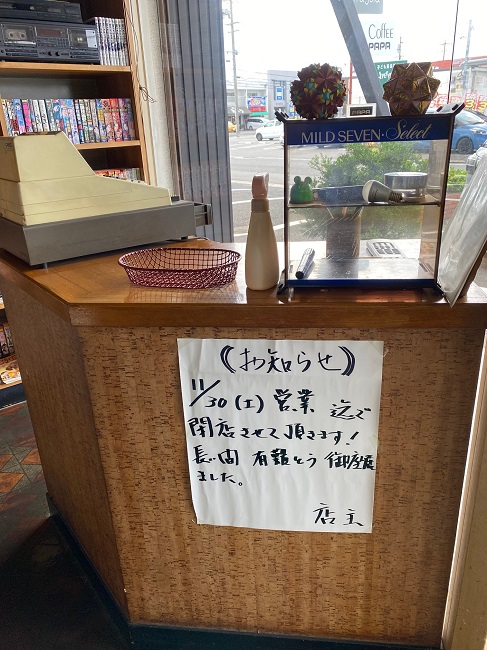 Coffee
PAPA
PAPA
MILD SEVEN・Select
《お知らせ》
11/30(土)営業 迄で
閉店させて頂きます!
長い間 有難とう 御座居
ました。
店主